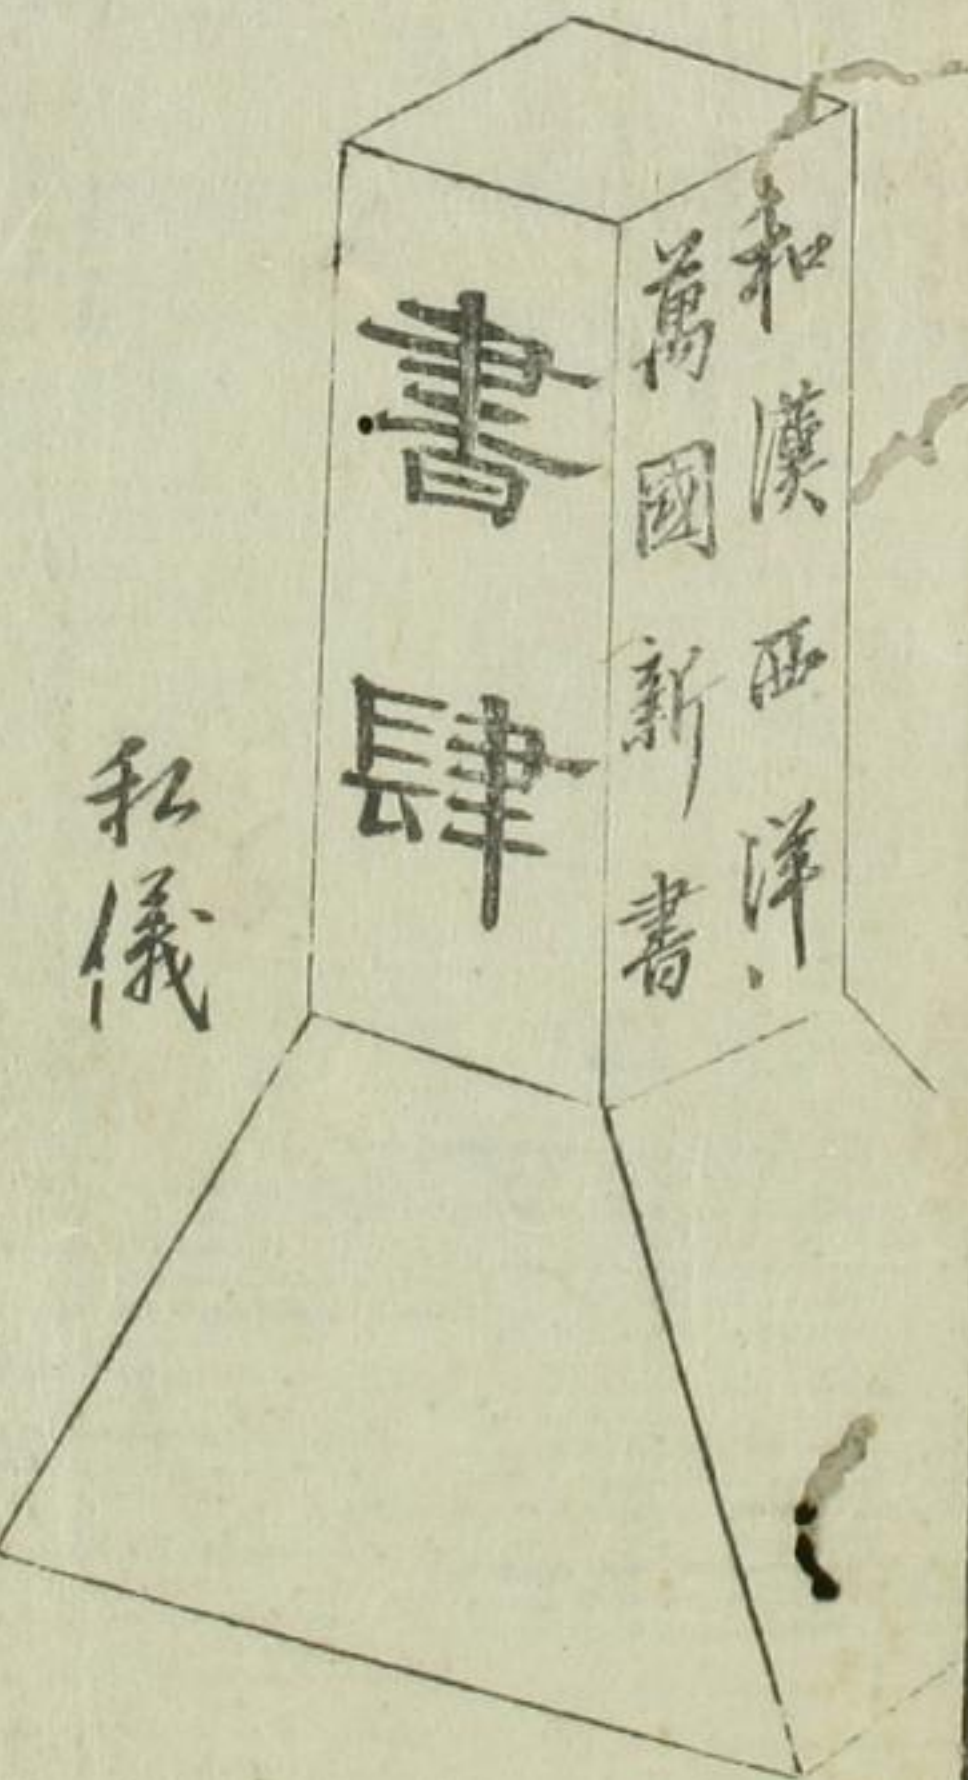 和漢西洋
萬國新書
書肆
私儀